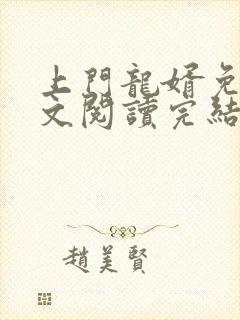 上門龍婿免
文閱讀完結
趙美賢